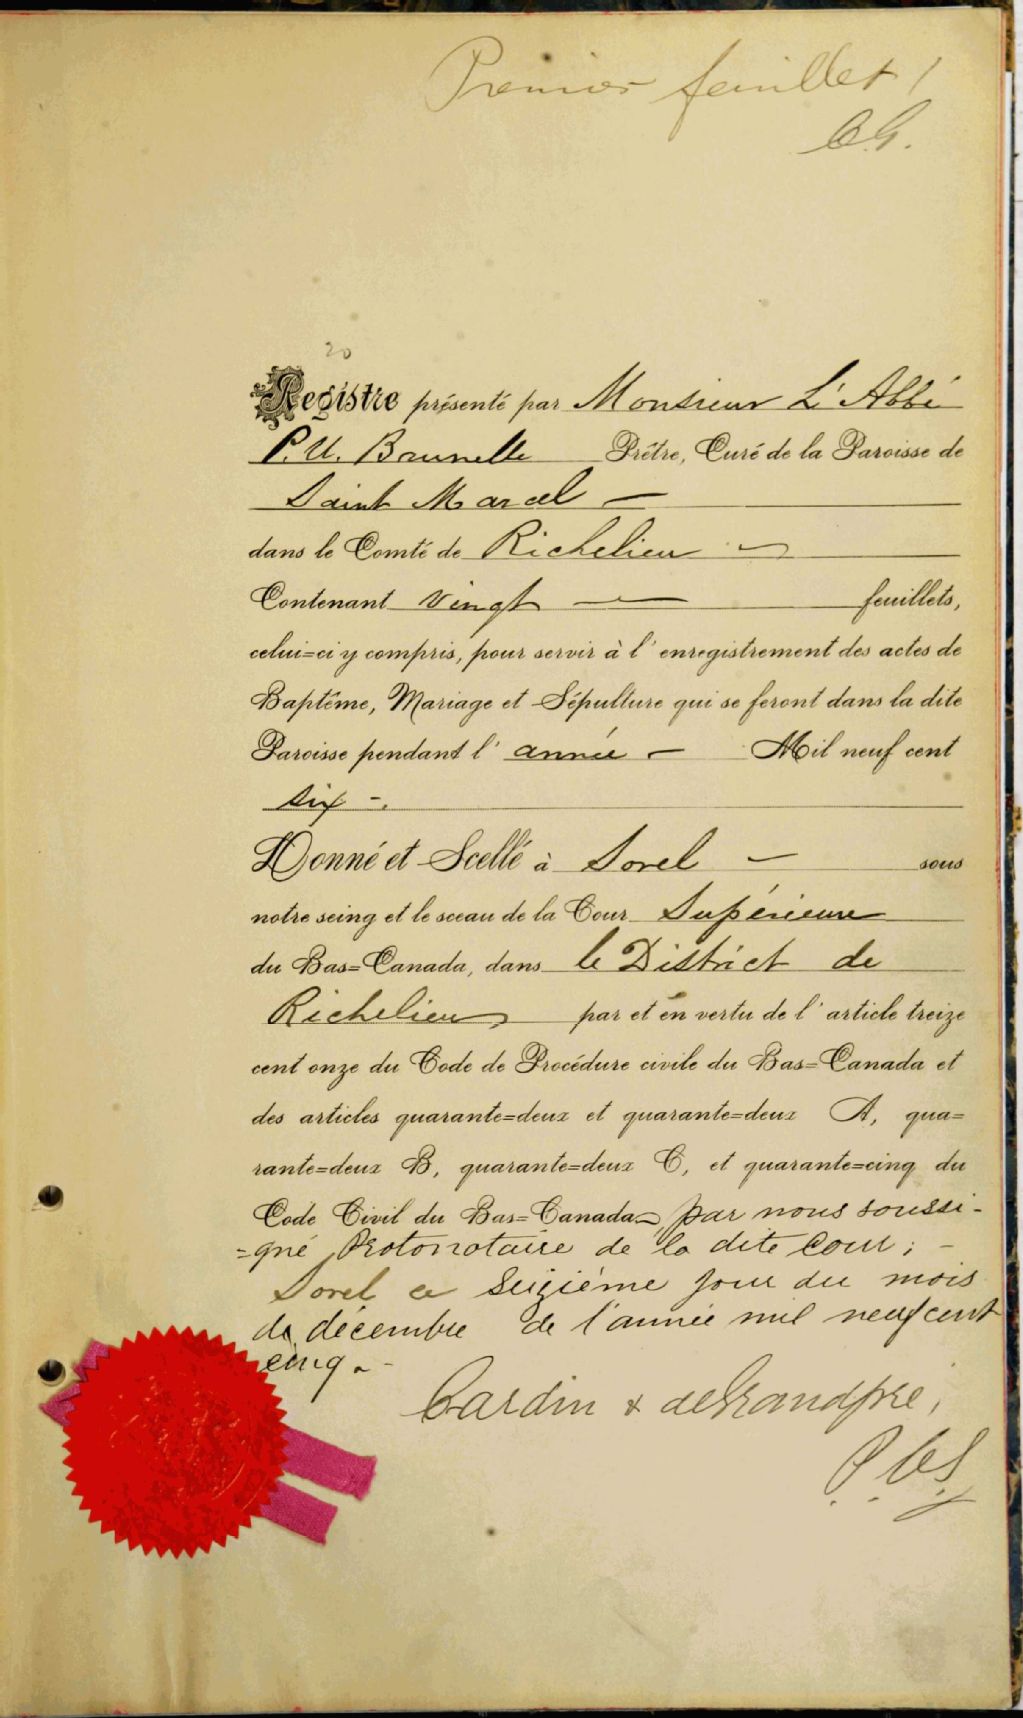 Premier feuillet /
C.G.
20
Registre présenté par Monsieur L'Abbé
P.U. Brunelle Prêtre, Curé de la Paroisse de
Saint Marcel —
dans le Comté de Richelieu —
Contenant vingt — feuillets,
celui=ci y compris, pour servir à l'enregistrement des actes de
Baptême, Mariage et Sépulture qui se feront dans la dite
Paroisse pendant l'année — Mil neuf cent
six -.
Donné et Scellé à Sorel — sous
notre seing et le sceau de la Cour Supérieure
du Bas=Canada, dans le District de
Richelieu par et en vertu de l'article treize
cent onze du Code de Procédure civile du Bas=Canada et
des articles quarante=deux et quarante=deux A, qua=
rante=deux B, quarante=deux C, et quarante=cinq du
Code Civil du Bas=Canada, par nous soussi-
=gné Protonotaire de la dite Cour; -
Sorel ce seizième jour du mois
de décembre de l'année mil neuf cent
cinq. -
Cardin & deGrandpré,
P.C.S.